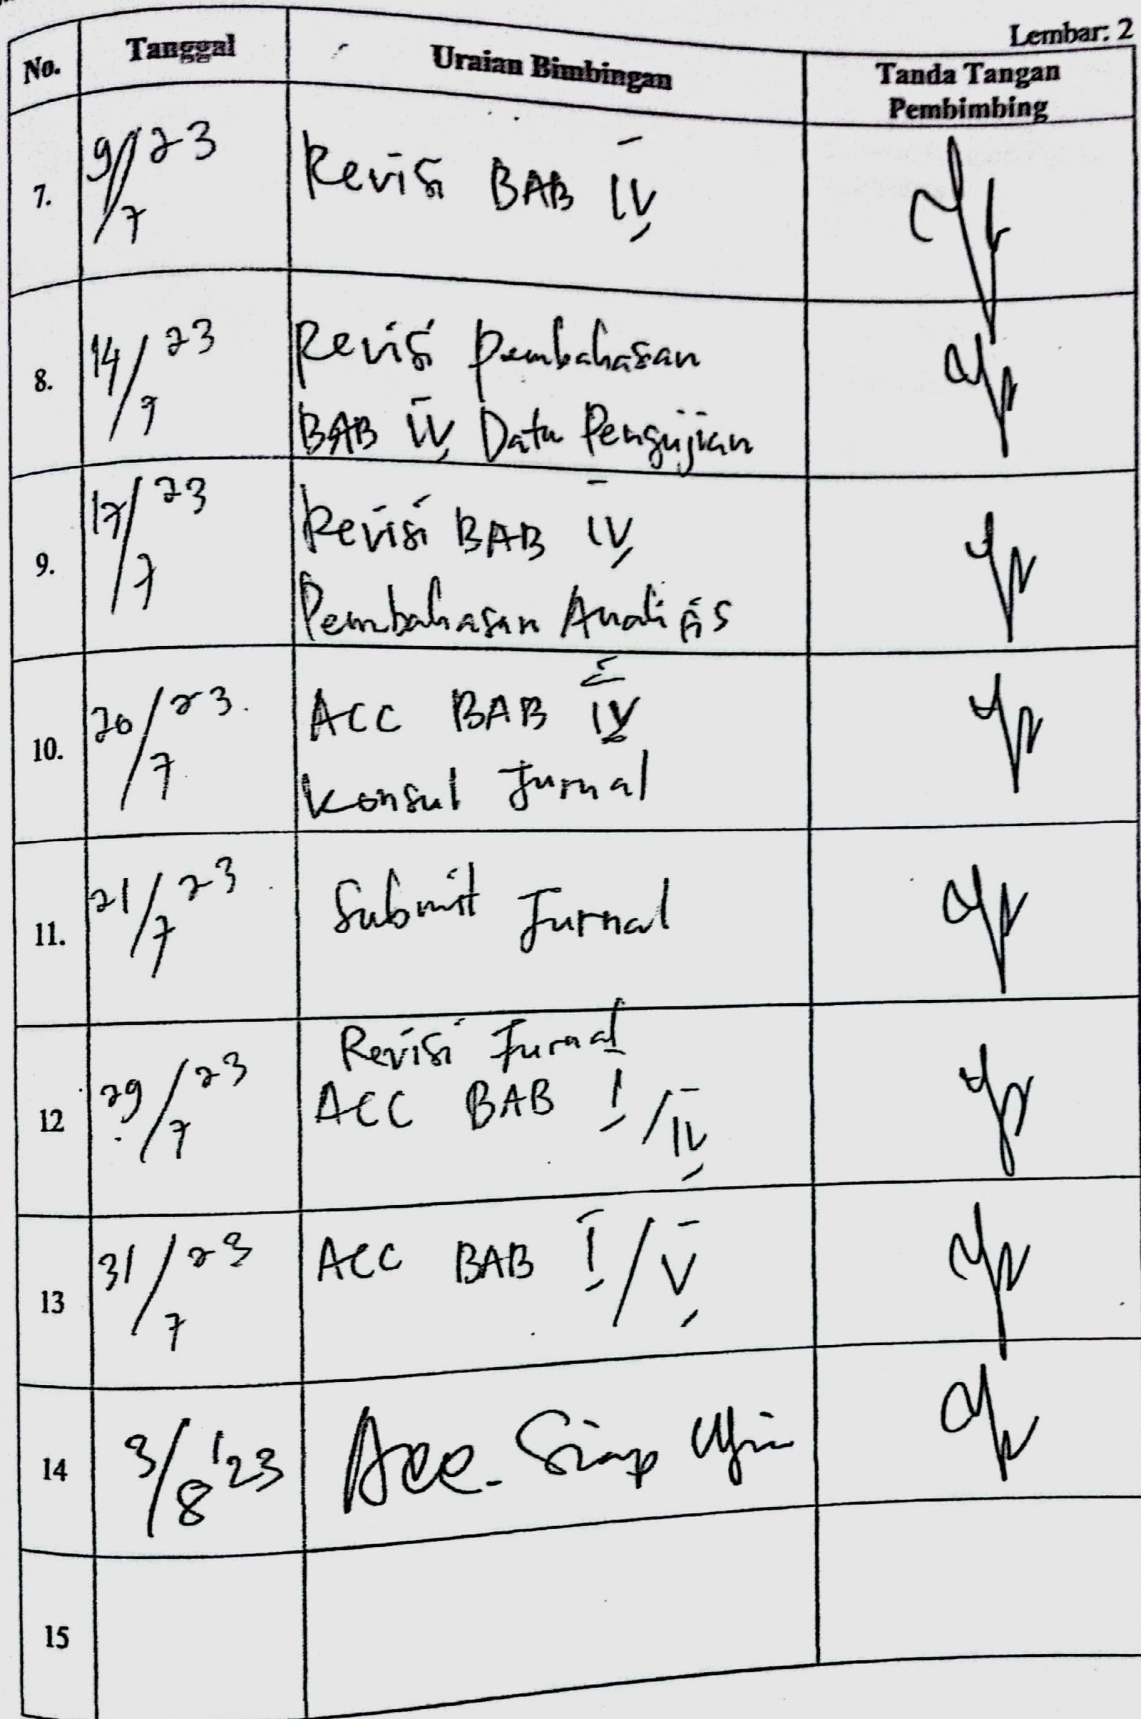 Lembar: 2
No. Tanggal Uraian Bimbingan Tanda Tangan Pembimbing
7. 9/7 23 Revisi BAB IV
8. 14/7 23 Revisi Pembahasan
BAB IV, Data Pengujian
9. 17/7 23 Revisi BAB IV,
Pembahasan Analisis
10. 20/7 23. ACC BAB IV
Konsul Jurnal
11. 21/7 23 Submit Jurnal
Revisi Jurnal
12 29/7 23 ACC BAB I/IV
13 31/7 23 ACC BAB I/V
14 3/8 '23 Acc. Siap Ujian
15